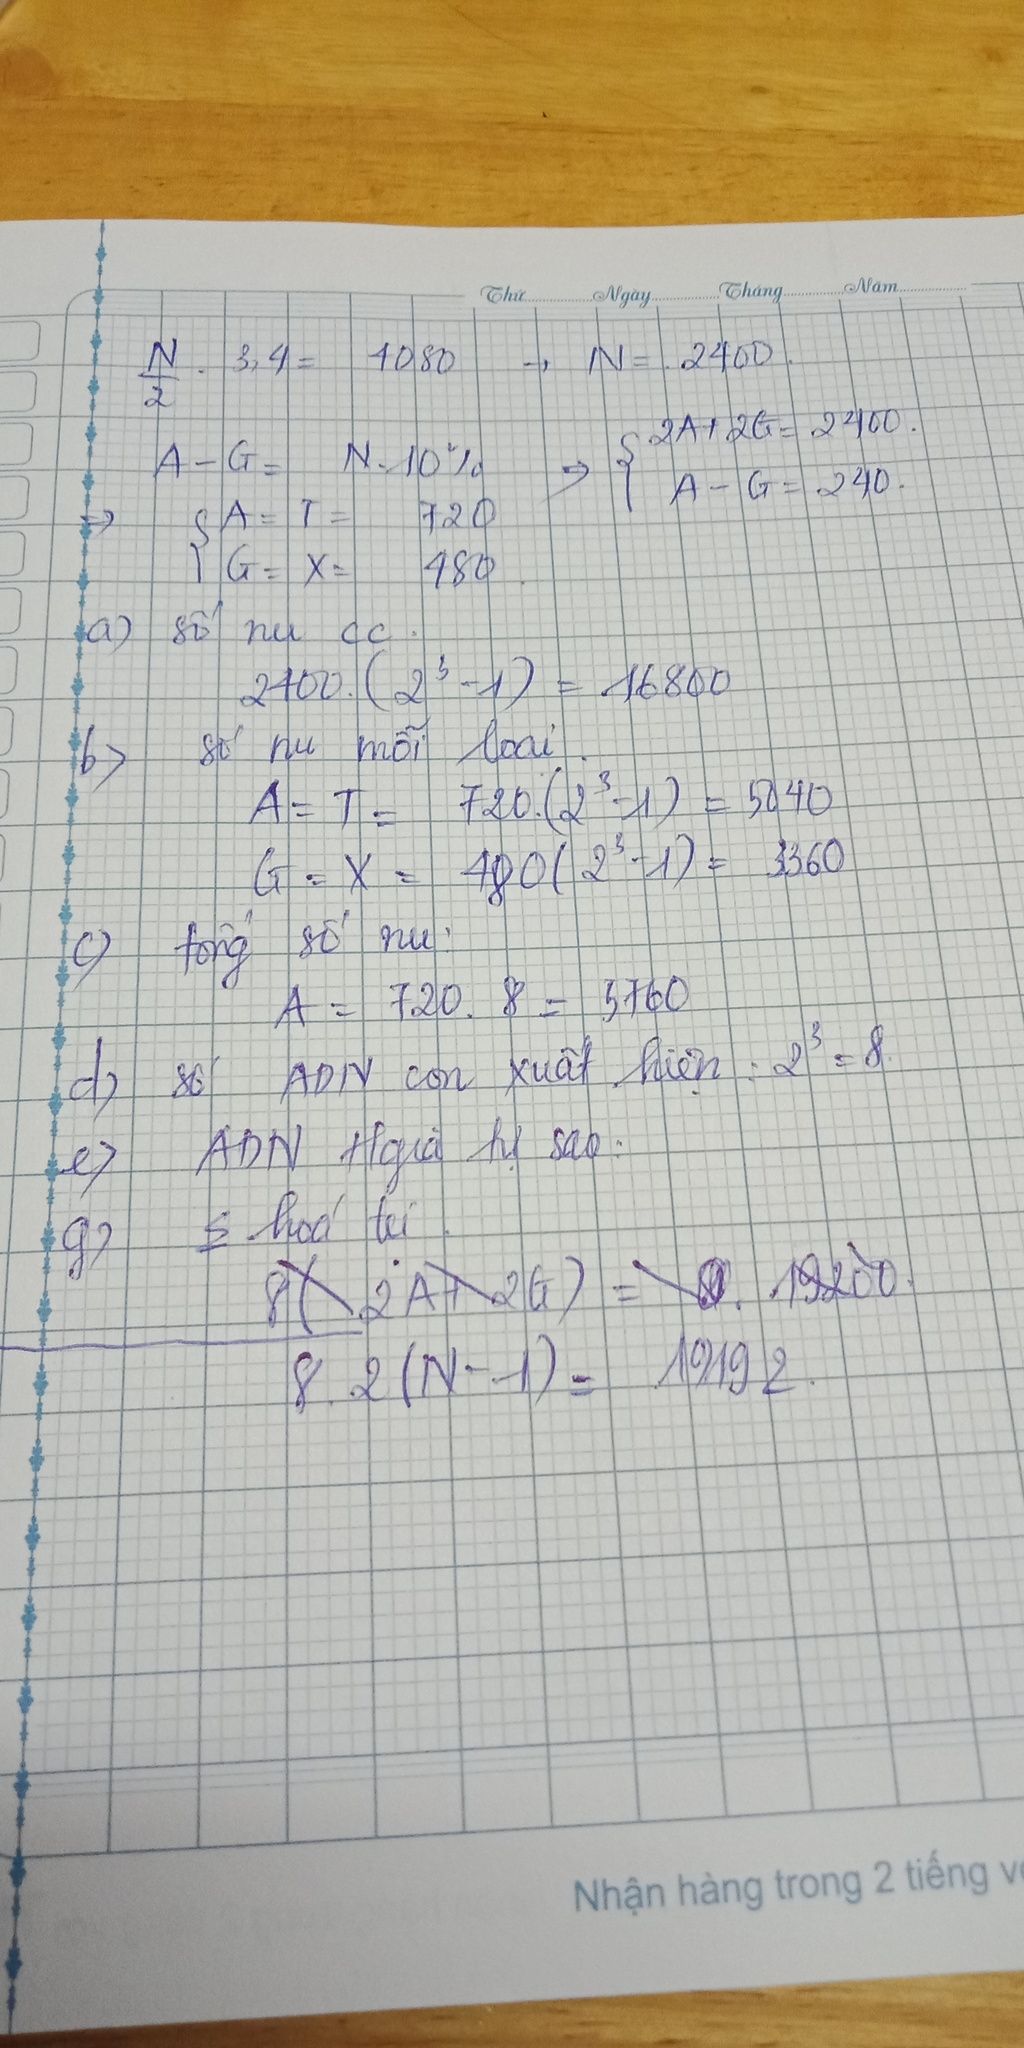 Thứ Ngày Tháng Năm
N/2 . 3,4 = 4080 → N = 2400.
A - G = N.10% ⇒ { 2A + 2G = 2400.
A - G = 240.
⇒ { A = T = 720
G = X = 480.
a) số nu cc.
2400.(2³-1) = 16800
b) số nu mỗi loại.
A = T = 720.(2³-1) = 5040
G = X = 480(2³-1) = 3360
c) tổng số nu:
A = 720. 8 = 5760
d) số ADN con xuất hiện: 2³ = 8.
e) ADN qua tự sao:
g) Σ hoá trị.
8( 2A + 2G) = 19200.
8. 2(N-1) = 19192.
Nhận hàng trong 2 tiếng